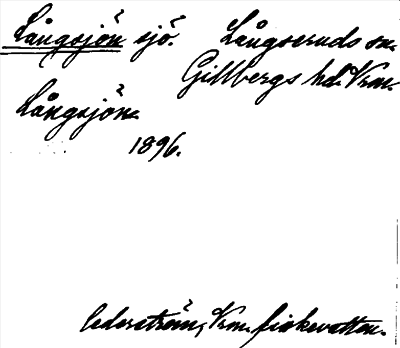 Långsjön sjö. Långseruds sn.
Gillbergs hd. Vrm.
Långsjön
1896.
Cederström, Vrm. fiskevatten.